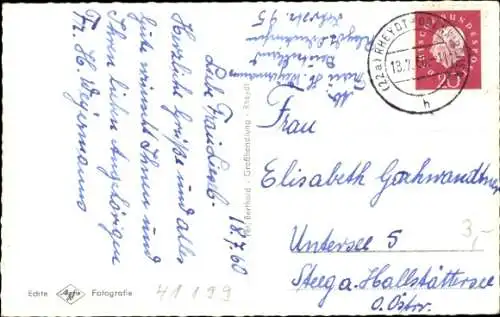 Liebe Frau Lieserl. 18.7.60
Herzliche Grüße und alles
Gute wünscht Ihnen und
Ihren lieben Angehörigen
Fr. H. Weyermanns
Abs.
Frau H. Weyermanns
Rheydt-
Str. 95
(22a) RHEYDT
18.7.60
h
DEUTSCHE BUNDESPOST
20
Frau
Elisabeth Gschwandtner
Untersee 5
Steeg a. Hallstättersee
O. Östrr.
3,-
Berthold - Großhandlung - Rheydt
Echte Agfa Fotografie
41199